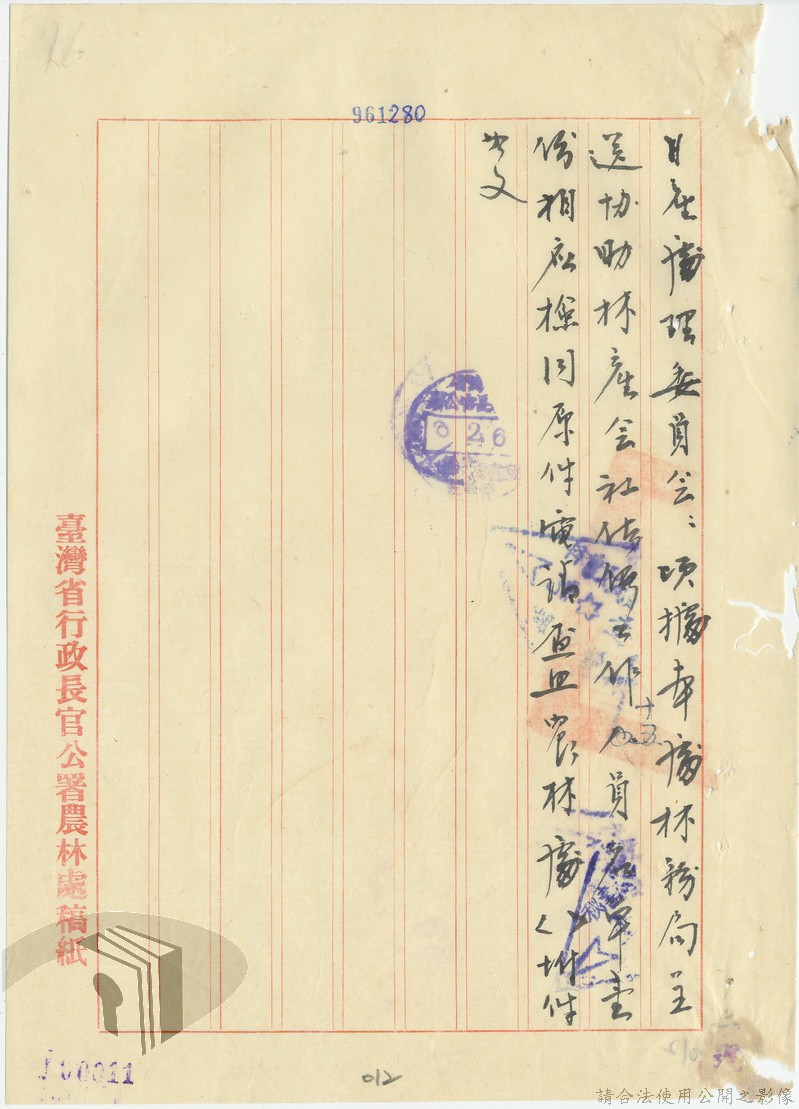 961280
日產處理委員会：頃據本處林務局呈
送協助林產会社估價工作人員名單壹
十五
份相应檢同原件電請查照農林處（）附件
如文
6 2 6
臺灣省行政長官公署農林處稿紙
J00011
012
請合法使用公開之影像